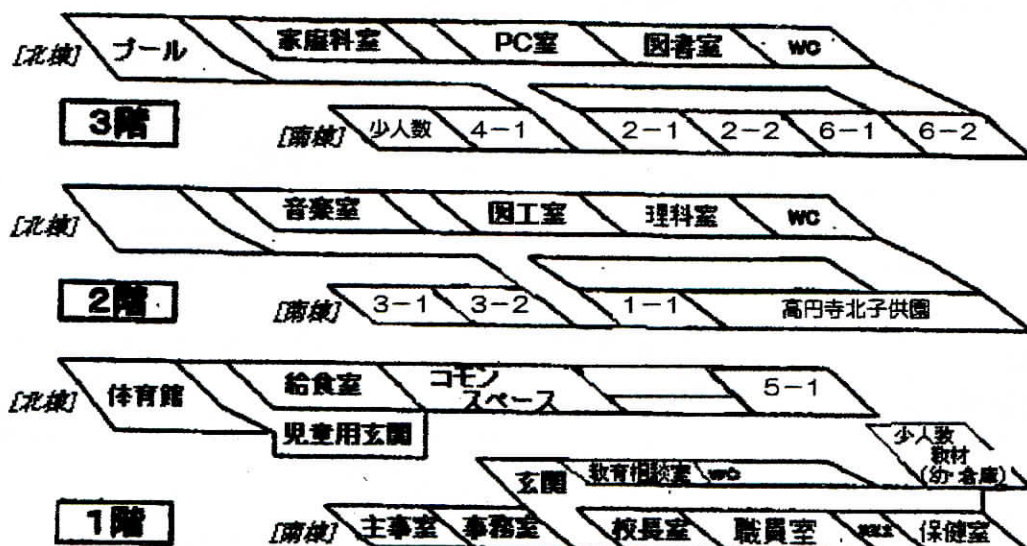 [北棟] プール 家庭科室 PC室 図書室 WC
3階
[南棟] 少人数 4-1 2-1 2-2 6-1 6-2
[北棟] 音楽室 図工室 理科室 WC
2階
[南棟] 3-1 3-2 1-1 高円寺北子供園
[北棟] 体育館 給食室 コモン
スペース 5-1
児童用玄関
少人数
教材
(幼・倉庫)
玄関 教育相談室 WC
1階
[南棟] 主事室 事務室 校長室 職員室 保健室